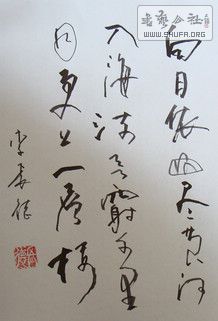 書藝公社
WWW.SHUFA.ORG
白日依山尽黄河
入海流欲窮千里
目更上一層楼